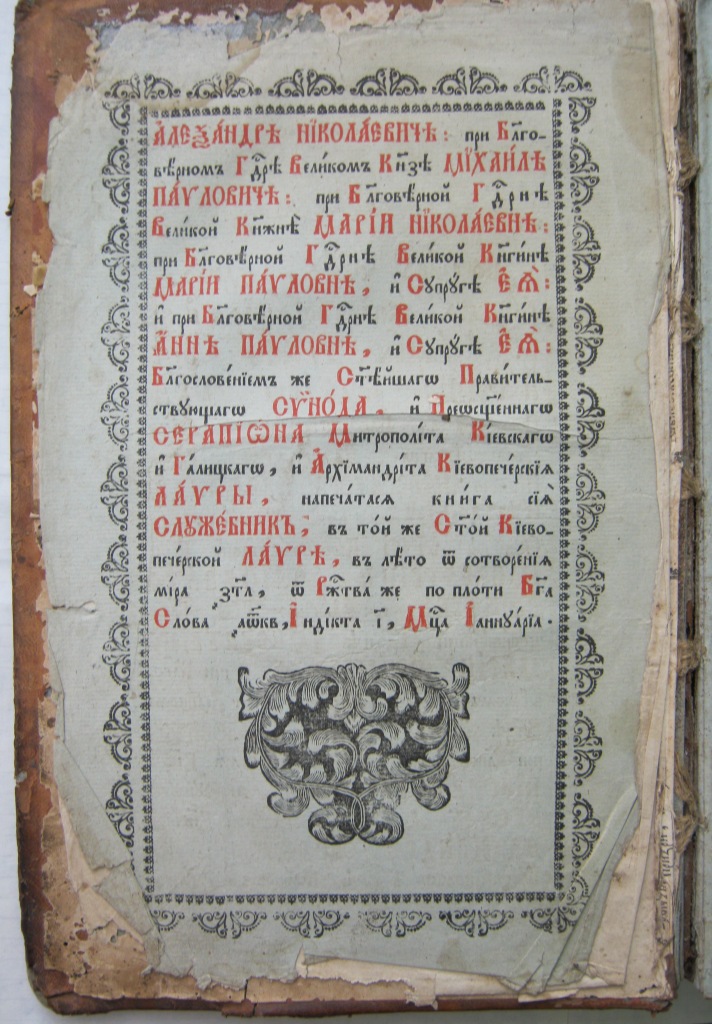 А҆леѯа́ндрѣ Нїкола́евичѣ: при Бл҃го-
вѣ́рномъ Гдⷭ҇рѣ Вели́комъ Кн҃зѣ Мїхаи́лѣ
Па́ѵловичѣ: при Бл҃говѣ́рной Гдⷭ҇рнѣ
Вели́кой Кн҃жнѣ̀ Марі́и Нїкола́евнѣ:
при Бл҃говѣ́рной Гдⷭ҇рнѣ Вели́кой Кн҃ги́нѣ
Марі́и Па́ѵловнѣ, и҆ Супрꙋ́гѣ Е҆ѧ̀:
и҆ при Бл҃говѣ́рной Гдⷭ҇рнѣ Вели́кой Кн҃ги́нѣ
А҆́ннѣ Па́ѵловнѣ, и҆ Сꙋпрꙋ́гѣ Е҆ѧ̀:
Бл҃гослове́нїемъ же Ст҃ѣ́йшагѡ Прави́тель-
ствꙋющагѡ Сѵно́да, и҆ Преѡсщ҃е́ннагѡ
Серапїѡ́на Митрополі́та Кі́евскагѡ
и҆ Га́лицкагѡ, и҆ А҆рхїмандрі́та Кїевопече́рскїѧ
Ла́ѵры, напеча́тасѧ кни́га сїѧ̀
Слꙋже́бникъ, въ то́й же Ст҃о́й Кїево-
пече́рской Ла́ѵрѣ, въ лѣ́то ѿ сотворе́нїѧ
мі́ра ҂зт҃л, ѿ Рж҇ⷭ҇тва́ же по пло́ти Бг҃а
Сло́ва ҂аѡ҃кв, І҆ндї́кта і҃, Мцⷭ҇а І҆аннꙋа́рїа.